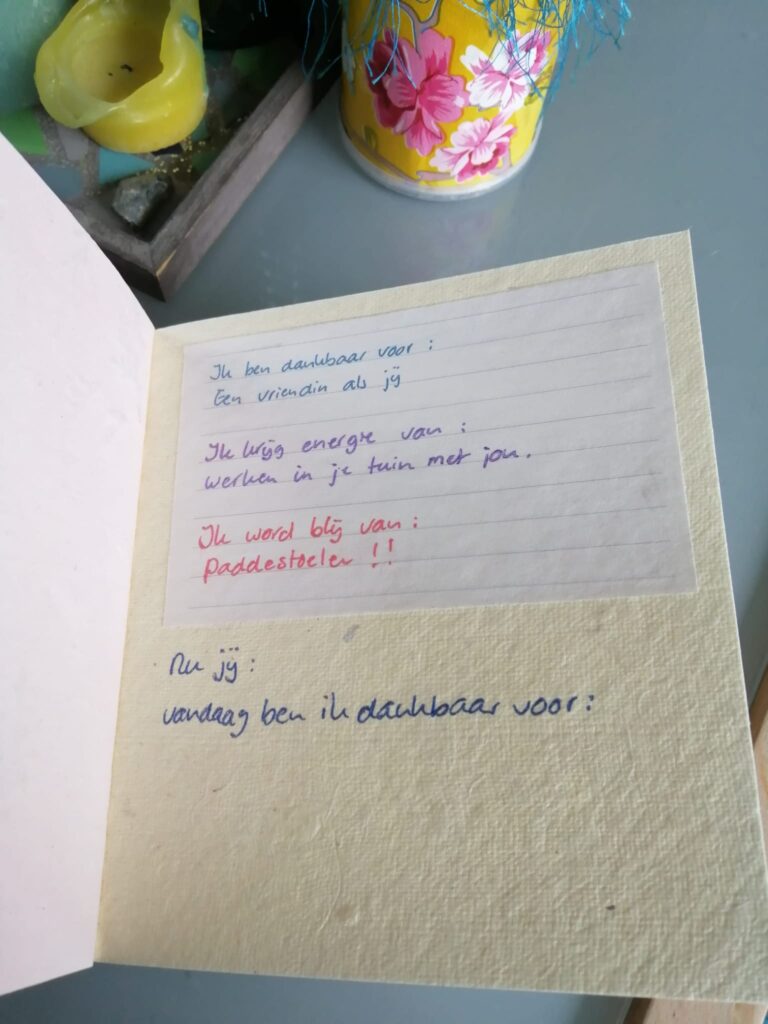 Ik ben dankbaar voor :
Een vriendin als jij
Ik krijg energie van :
werken in je tuin met jou.
Ik word blij van :
paddestoelen !!
Nu jij :
vandaag ben ik dankbaar voor :